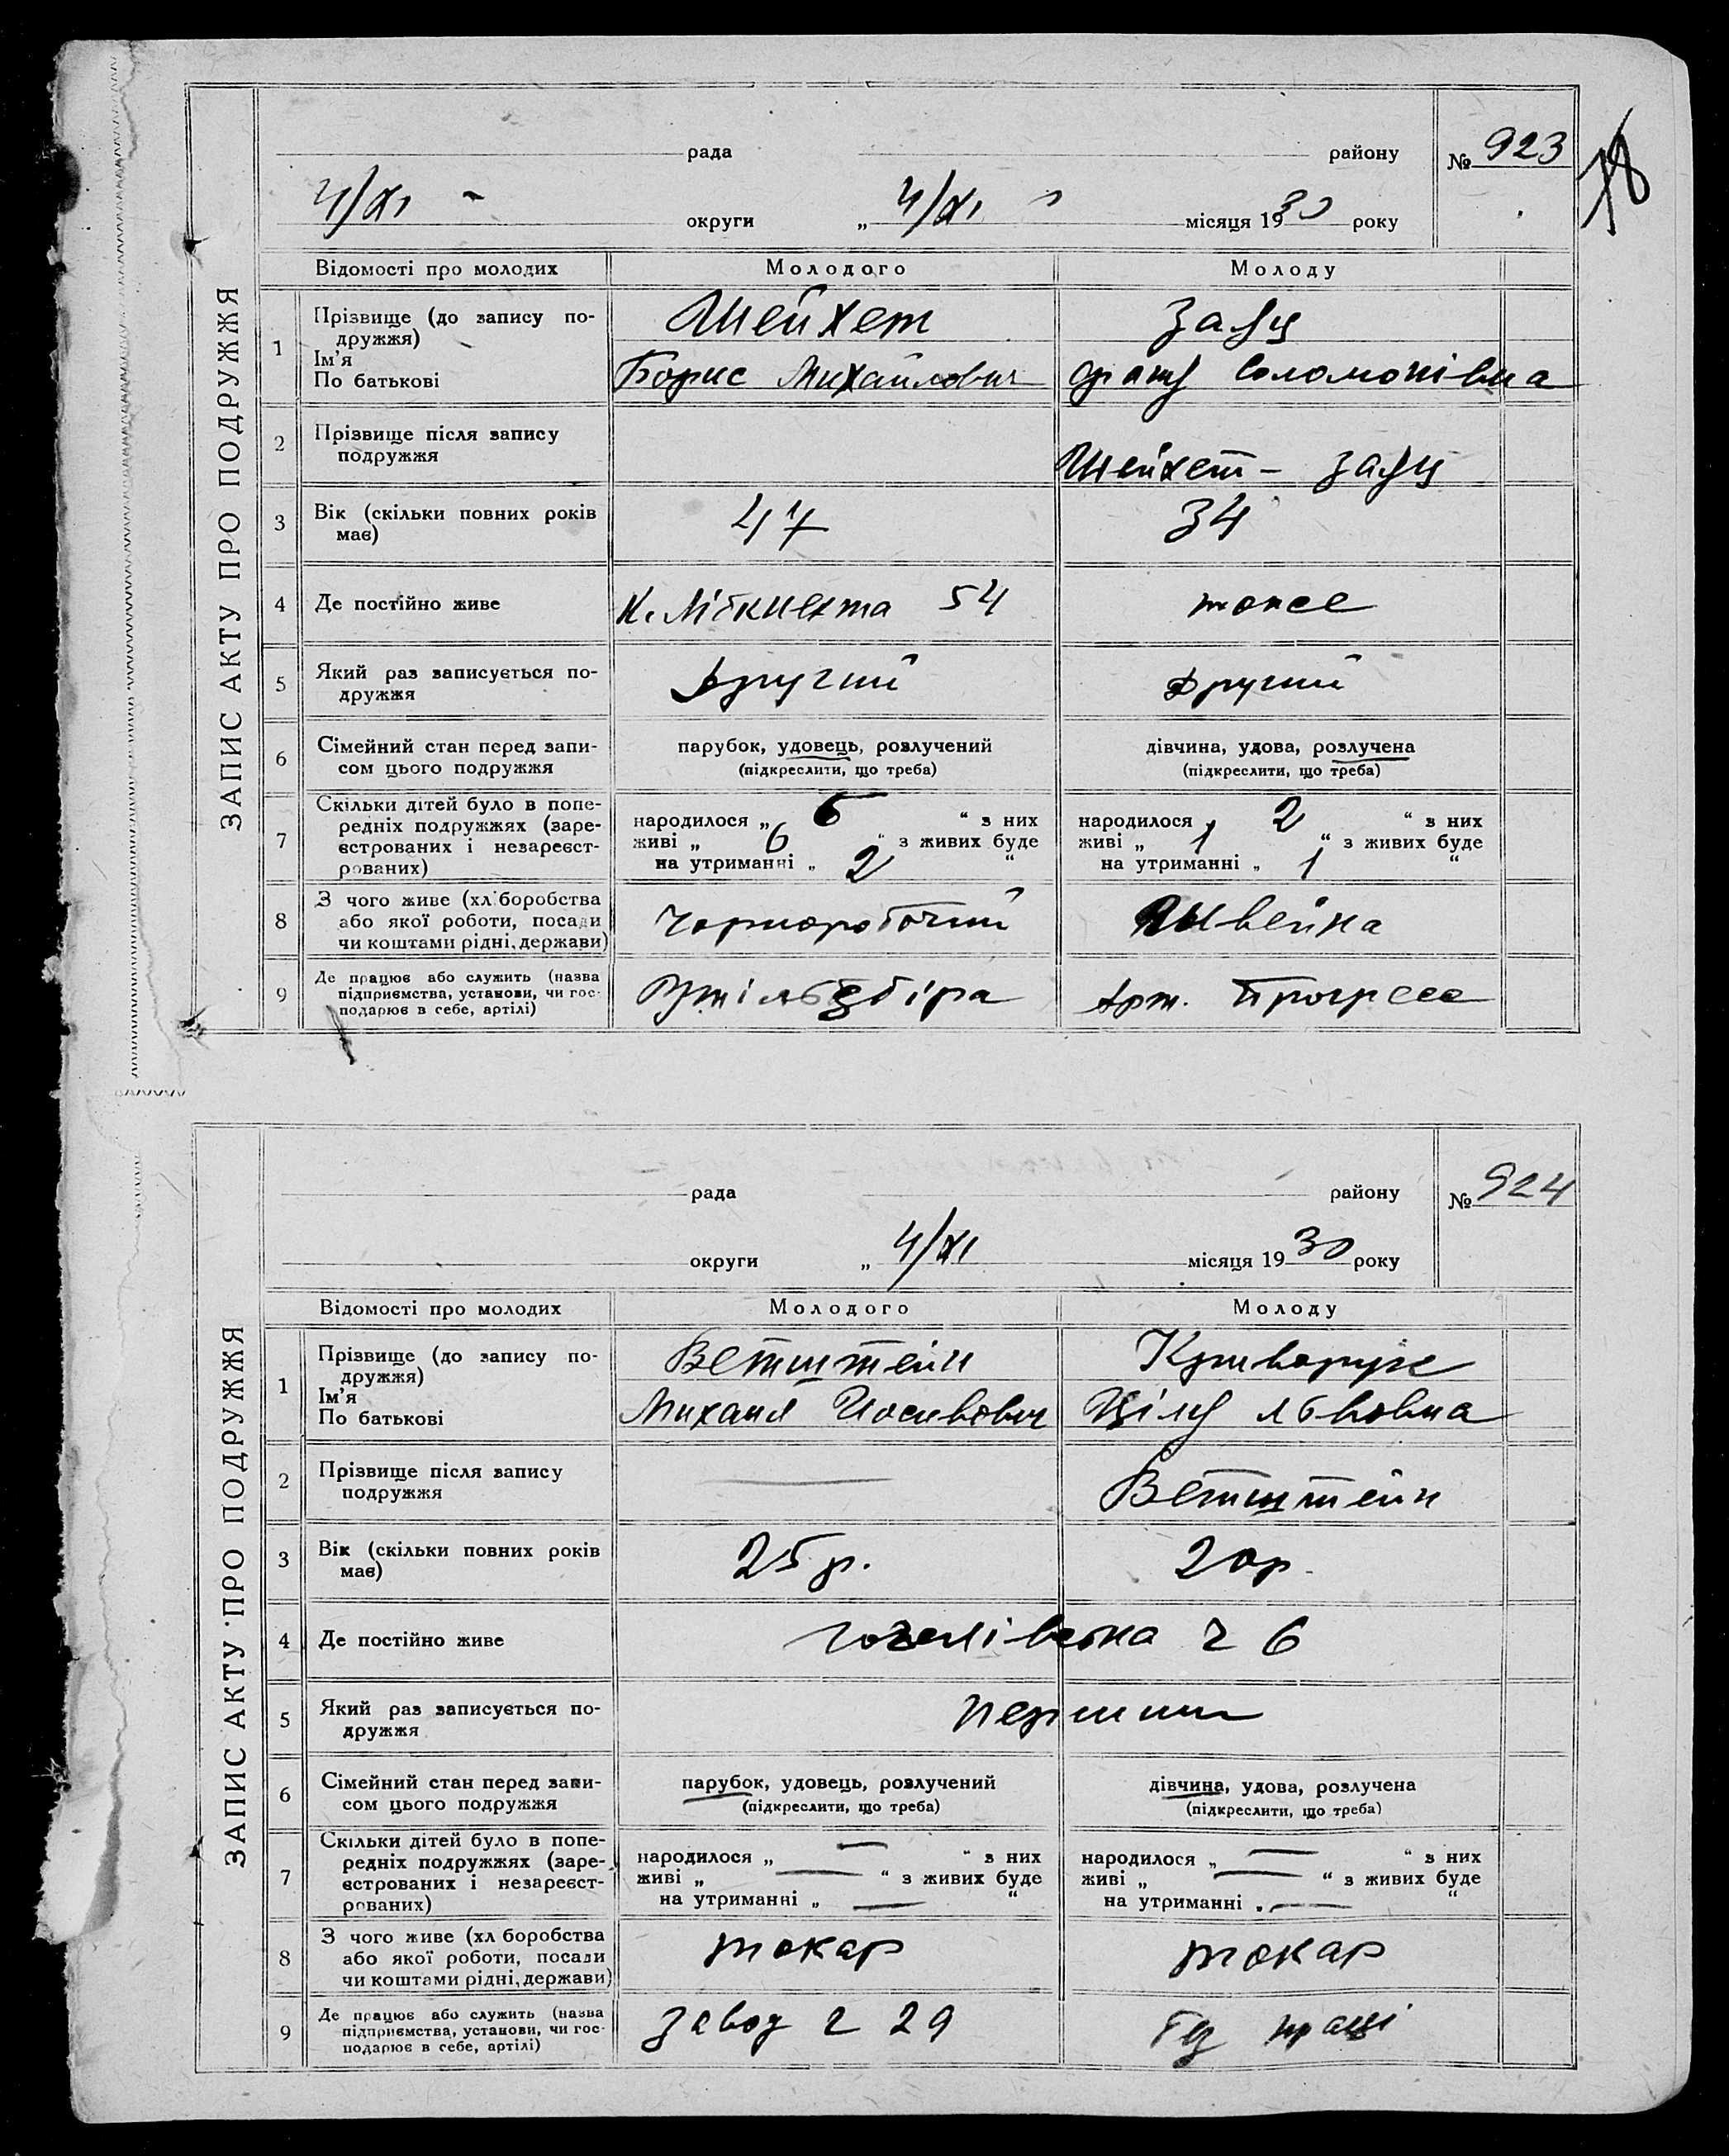 78
ЗАПИС АКТУ ПРО ПОДРУЖЖЯ
рада району № 923
4/XI - округи „ 4/XI місяця 1930 року
Відомості про молодих Молодого Молоду
1 Прізвище (до запису по-
дружжя)
Ім'я
По батькові
Шейхет
Борис Михайлович
Заяц
Соломонівна
2 Прізвище після запису
подружжя
Шейхет - Заяц
3 Вік (скільки повних років
має)
47
34
4 Де постійно живе
К. Лібкнехта 54
тоже
5 Який раз записується по-
дружжя
Другий
Другий
6 Сімейний стан перед запи-
сом цього подружжя
парубок, удовець, розлучений
(підкреслити, що треба)
дівчина, удова, розлучена
(підкреслити, що треба)
7 Скільки дітей було в попе-
редніх подружжях (заре-
єстрованих і незареєст-
рованих)
народилося „ 6 “ з них
живі „ 6 “ з живих буде
на утриманні „ 2 “
народилося „ 2 “ з них
живі „ 1 “ з живих буде
на утриманні „ 1 “
8 З чого живе (хліборобства
або якої роботи, посади
чи коштами рідні, держави)
Чорноробочий
Швейка
9 Де працює або служить (назва
підприємства, установи, чи гос-
подарює в себе, артілі)
Утільзбіра
Арт. Прогресс
ЗАПИС АКТУ ПРО ПОДРУЖЖЯ
рада району № 924
округи „ 4/XI місяця 1930 року
Відомості про молодих Молодого Молоду
1 Прізвище (до запису по-
дружжя)
Ім'я
По батькові
Ветштейн
Михаил Иосипович
Криворук
Ціля Львовна
2 Прізвище після запису
подружжя
—
Ветштейн
3 Вік (скільки повних років
має)
25 р.
20 р.
4 Де постійно живе
ч 6
5 Який раз записується по-
дружжя
перший
6 Сімейний стан перед запи-
сом цього подружжя
парубок, удовець, розлучений
(підкреслити, що треба)
дівчина, удова, розлучена
(підкреслити, що треба)
7 Скільки дітей було в попе-
редніх подружжях (заре-
єстрованих і незареєст-
рованих)
народилося „ — “ з них
живі „ — “ з живих буде
на утриманні „ — “
народилося „ — “ з них
живі „ — “ з живих буде
на утриманні „ — “
8 З чого живе (хліборобства
або якої роботи, посади
чи коштами рідні, держави)
токар
токар
9 Де працює або служить (назва
підприємства, установи, чи гос-
подарює в себе, артілі)
Завод ч 29
праці